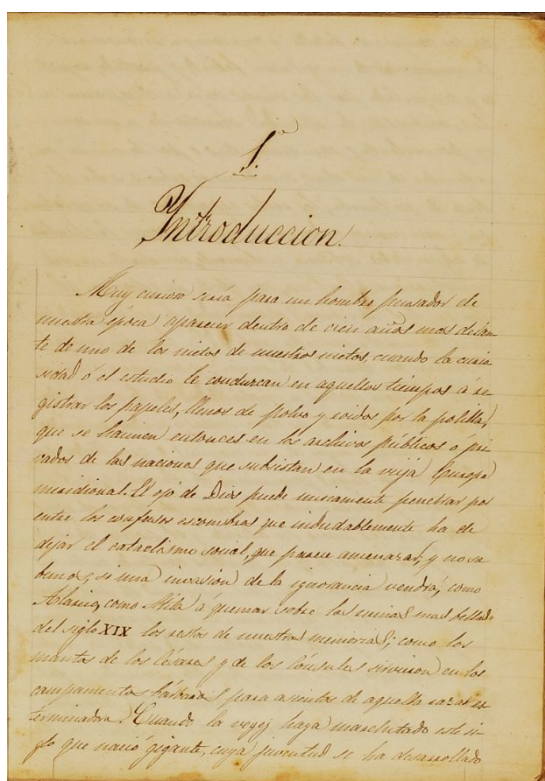 I.
Introduccion.
Muy curioso sería para un hombre pensador de
nuestra época aparecer dentro de cien años mas delan-
te de uno de los nietos de nuestros nietos, cuando la curio
sidad ó el estudio le conduzcan en aquellos tiempos á re-
gistrar los papeles, llenos de polvo y roidos por la polilla,
que se hacinen entonces en los archivos públicos ó pri
vados de las naciones que subsistan en la vieja Europa
meridional. El ojo de Dios puede unicamente penetrar por
entre los confusos escombros que indudablemente ha de
dejar el cataclismo social, que parece amenazar, y no sa
bemos, si una invasion de la ignorancia vendrá, como
Alarico, como Atila á quemar sobre las ruinas mas bellas
del siglo XIX los restos de nuestras memorias; como los
mantos de los Césares y de los Cónsules sirvieron en los
campamentos bárbaros para asientos de aquella raza ex
terminadora. Cuando la vejez haya marchitado este si-
glo que nació gigante, cuya juventud se ha desarrollado